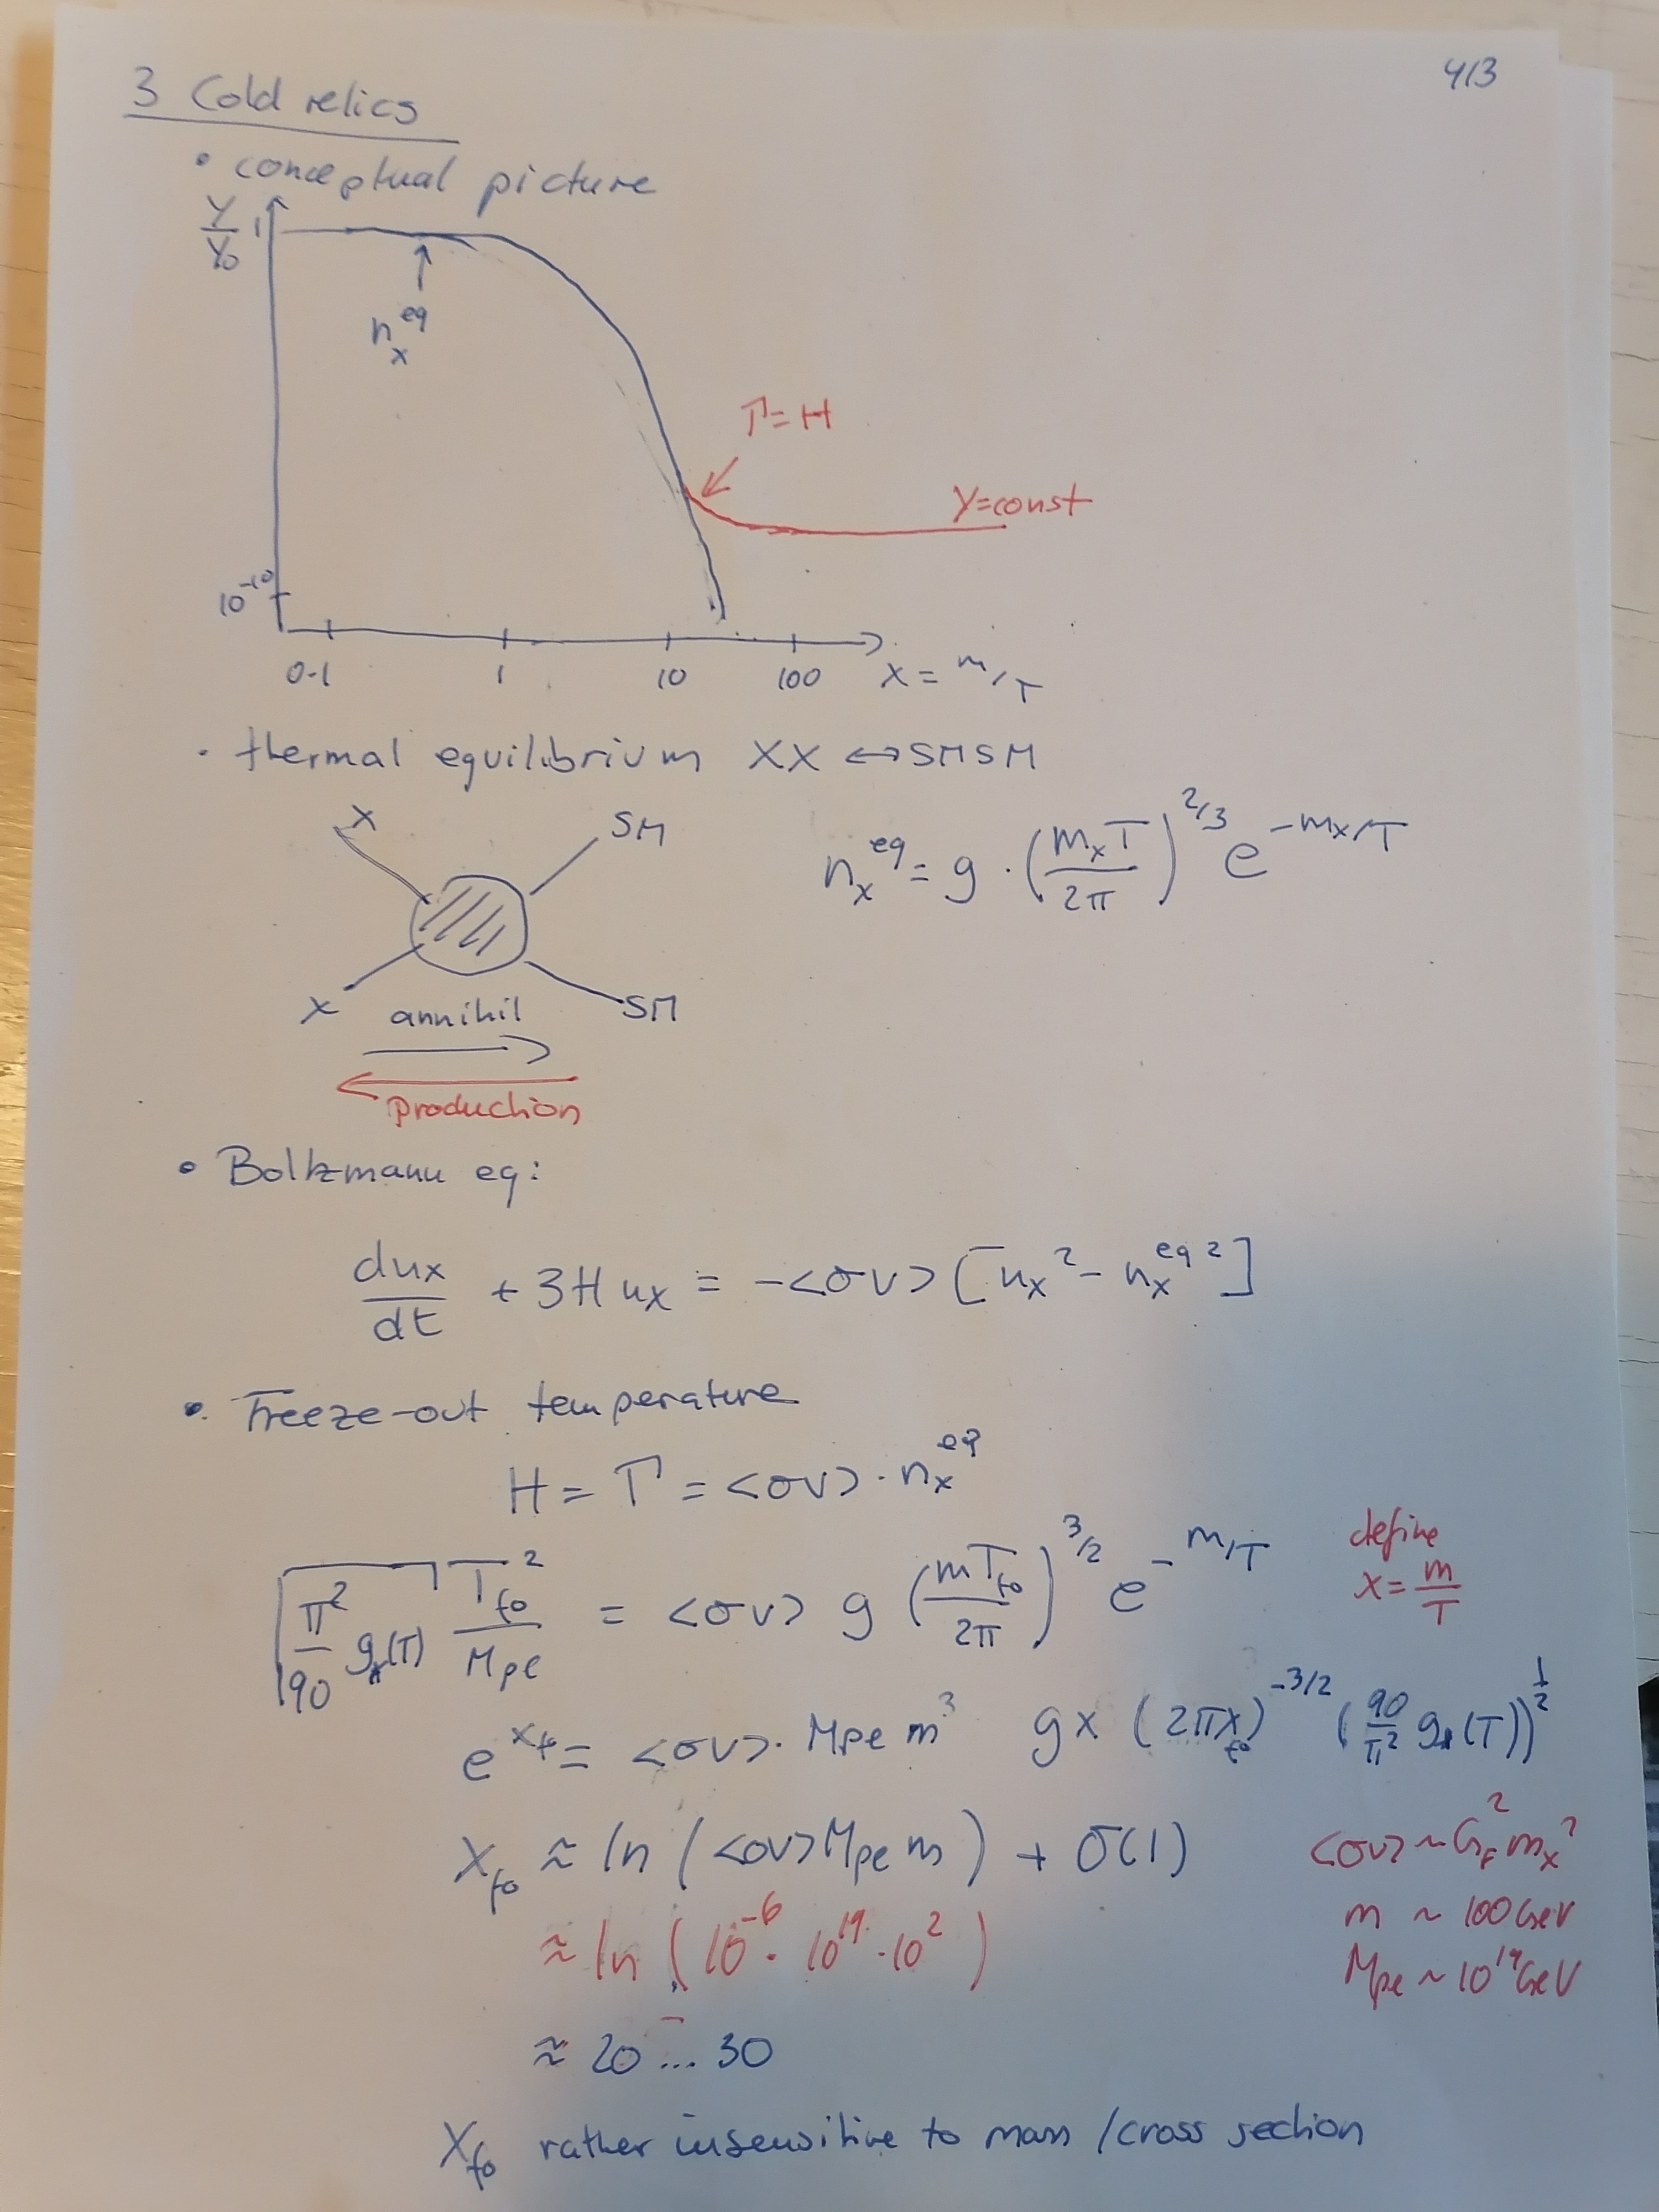 4/3
3 Cold relics
• conceptual picture
Y/Y₀
1
n_x^eq
Γ = H
Y=const
10^-10
0.1 1 10 100 x = m/T
• thermal equilibrium XX ↔ SM SM
X SM
n_x^eq = g · (m_x T / 2π)^2/3 e^-m_x/T
X SM
annihil
production
• Boltzmann eq:
dn_x/dt + 3H n_x = -<σv> [n_x^2 - n_x^eq 2]
• Freeze-out temperature
H = Γ = <σv> · n_x^eq
√(π²/90 g_*(T)) T_fo^2 / M_pl = <σv> g (m T_fo / 2π)^3/2 e^-m/T
define
x = m/T
e^x_f = <σv> · M_pl m^3 g_x (2π x_fo)^-3/2 (90/π² g_*(T))^1/2
x_fo ≈ ln (<σv> M_pl m) + O(1)
<σv> ~ G_F^2 m_x^2
≈ ln (10^-6 · 10^19 · 10^2)
m ~ 100 GeV
M_pl ~ 10^19 GeV
≈ 20 ... 30
X_fo rather insensitive to mass / cross section